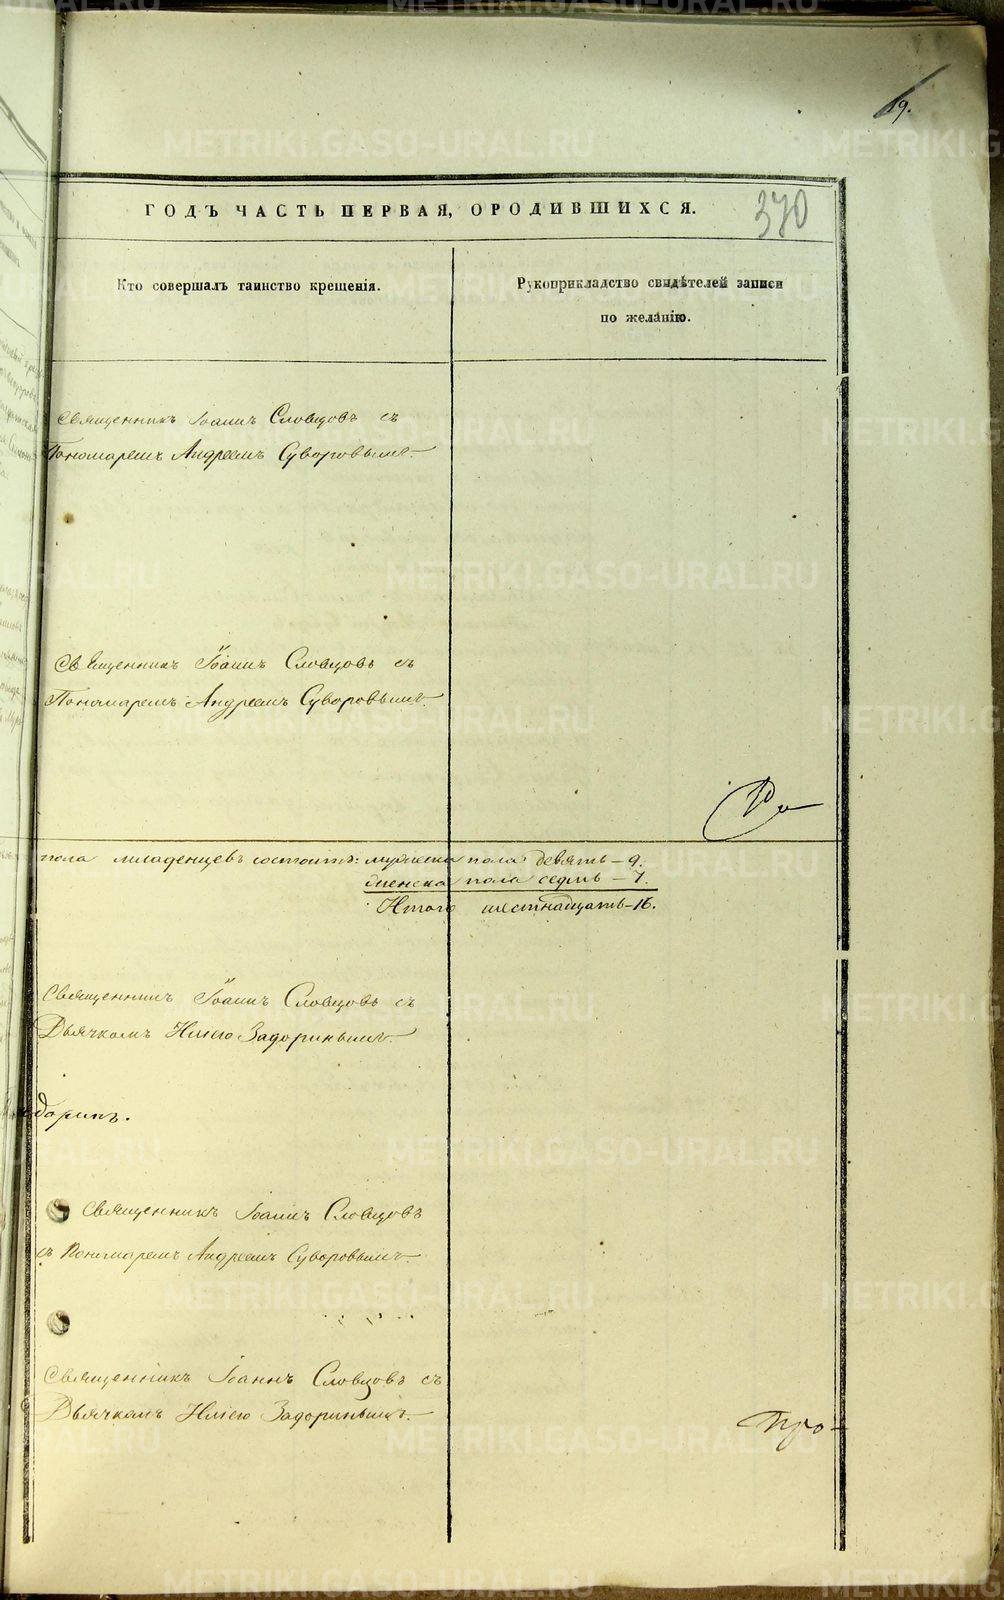 19.
370
ГОДЪ ЧАСТЬ ПЕРВАЯ, О РОДИВШИХСЯ.
Кто совершалъ таинство крещенія.
Рукоприкладство свидѣтелей записи
по желанію.
Священникъ Іоаннъ Словцовъ съ
Пономаремъ Андреемъ Суворовымъ.
Священникъ Іоаннъ Словцовъ съ
Пономаремъ Андреемъ Суворовымъ.
пола младенцевъ состоитъ: мужеска пола девять – 9.
женска пола седмь – 7.
Итого шестнадцать – 16.
Священникъ Іоаннъ Словцовъ съ
Дьячкомъ Иліею Задоринымъ.
доринъ.
Священникъ Іоаннъ Словцовъ
съ Пономаремъ Андреемъ Суворовымъ.
Священникъ Іоаннъ Словцовъ съ
Дьячкомъ Иліею Задоринымъ.
Про-
METRIKI.GASO-URAL.RU